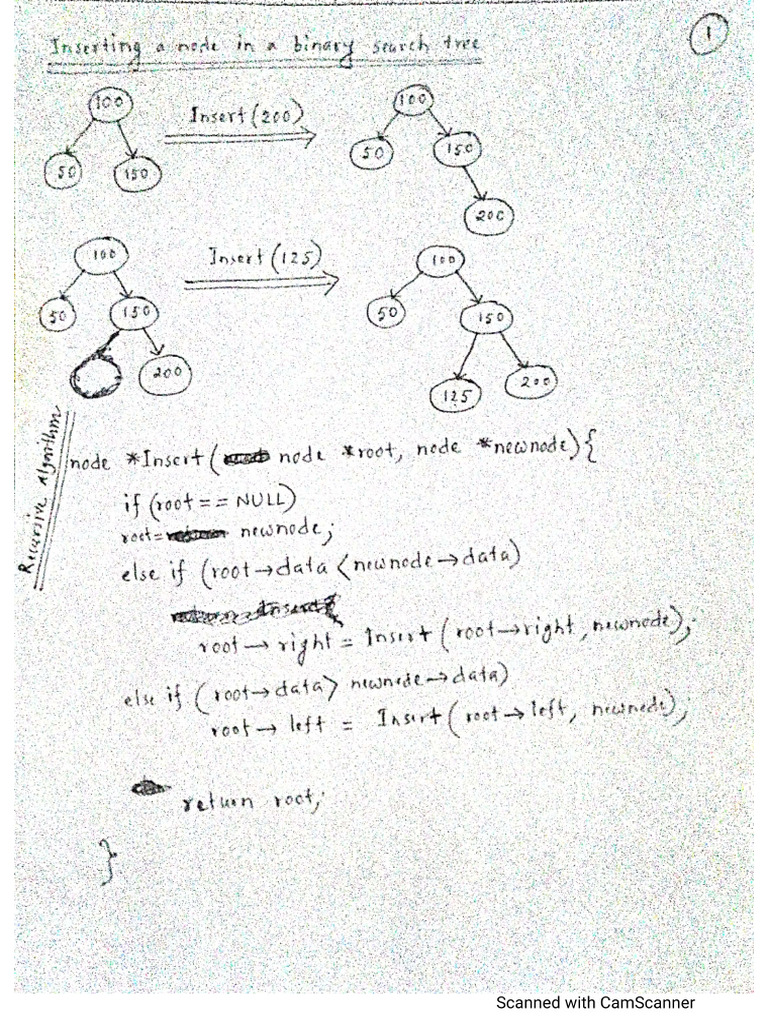 1
Inserting a node in a binary search tree
100
50 150
Insert(200)
100
50 150
200
100
50 150
200
Insert(125)
100
50 150
125 200
Recursive algorithm
node *Insert( node *root, node *newnode){
if (root == NULL)
root= newnode;
else if (root→data < newnode→data)
root→ right = Insert( root→right, newnode);
else if ( root→data> newnode→data)
root→ left = Insert( root→left, newnode);
return root;
}
Scanned with CamScanner